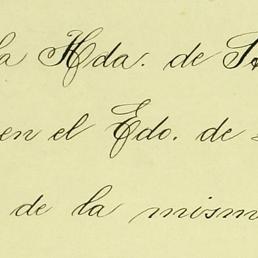 la Hda. de
en el Edo. de
de la mism